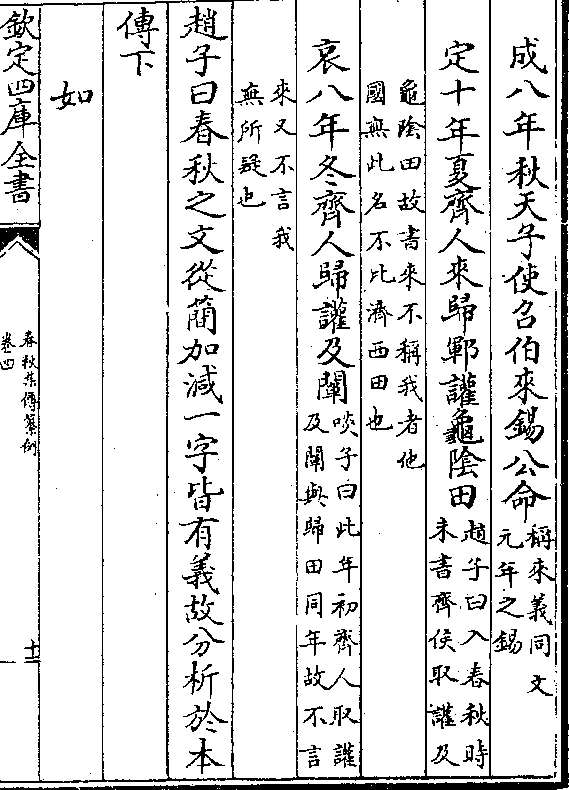 成八年秋天子使召伯來錫公命稱來義同文元年之錫
定十年夏齊人來歸鄆讙龜陰田趙子曰入春秋時未書齊侯取讙及
龜陰田故書來不稱我者他國無此名不比濟西田也
哀八年冬齊人歸讙及闡啖子曰此年初齊人取讙及闡與歸田同年故不言
來又不言我無所疑也
趙子曰春秋之文從簡加減一字皆有義故分析於本
傳下
如
欽定四庫全書
春秋集傳纂例
卷四
十二